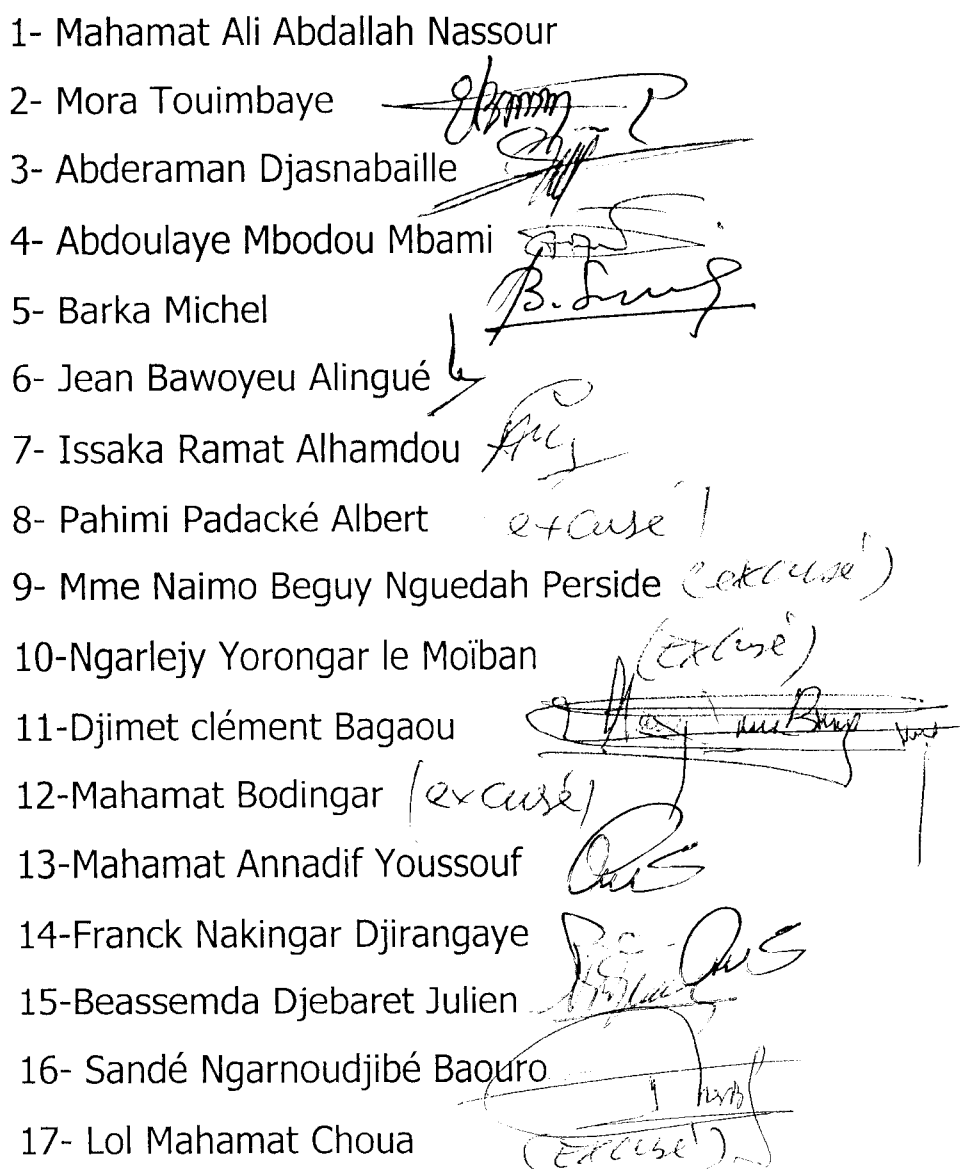 1- Mahamat Ali Abdallah Nassour
2- Mora Touimbaye
3- Abderaman Djasnabaille
4- Abdoulaye Mbodou Mbami
5- Barka Michel
6- Jean Bawoyeu Alingué
7- Issaka Ramat Alhamdou
8- Pahimi Padacké Albert excusé
9- Mme Naimo Beguy Nguedah Perside (excusé)
10-Ngarlejy Yorongar le Moïban (Excusé)
11-Djimet clément Bagaou
12-Mahamat Bodingar (excusé)
13-Mahamat Annadif Youssouf
14-Franck Nakingar Djirangaye
15-Beassemda Djebaret Julien
16- Sandé Ngarnoudjibé Baouro
17- Lol Mahamat Choua (Excusé)